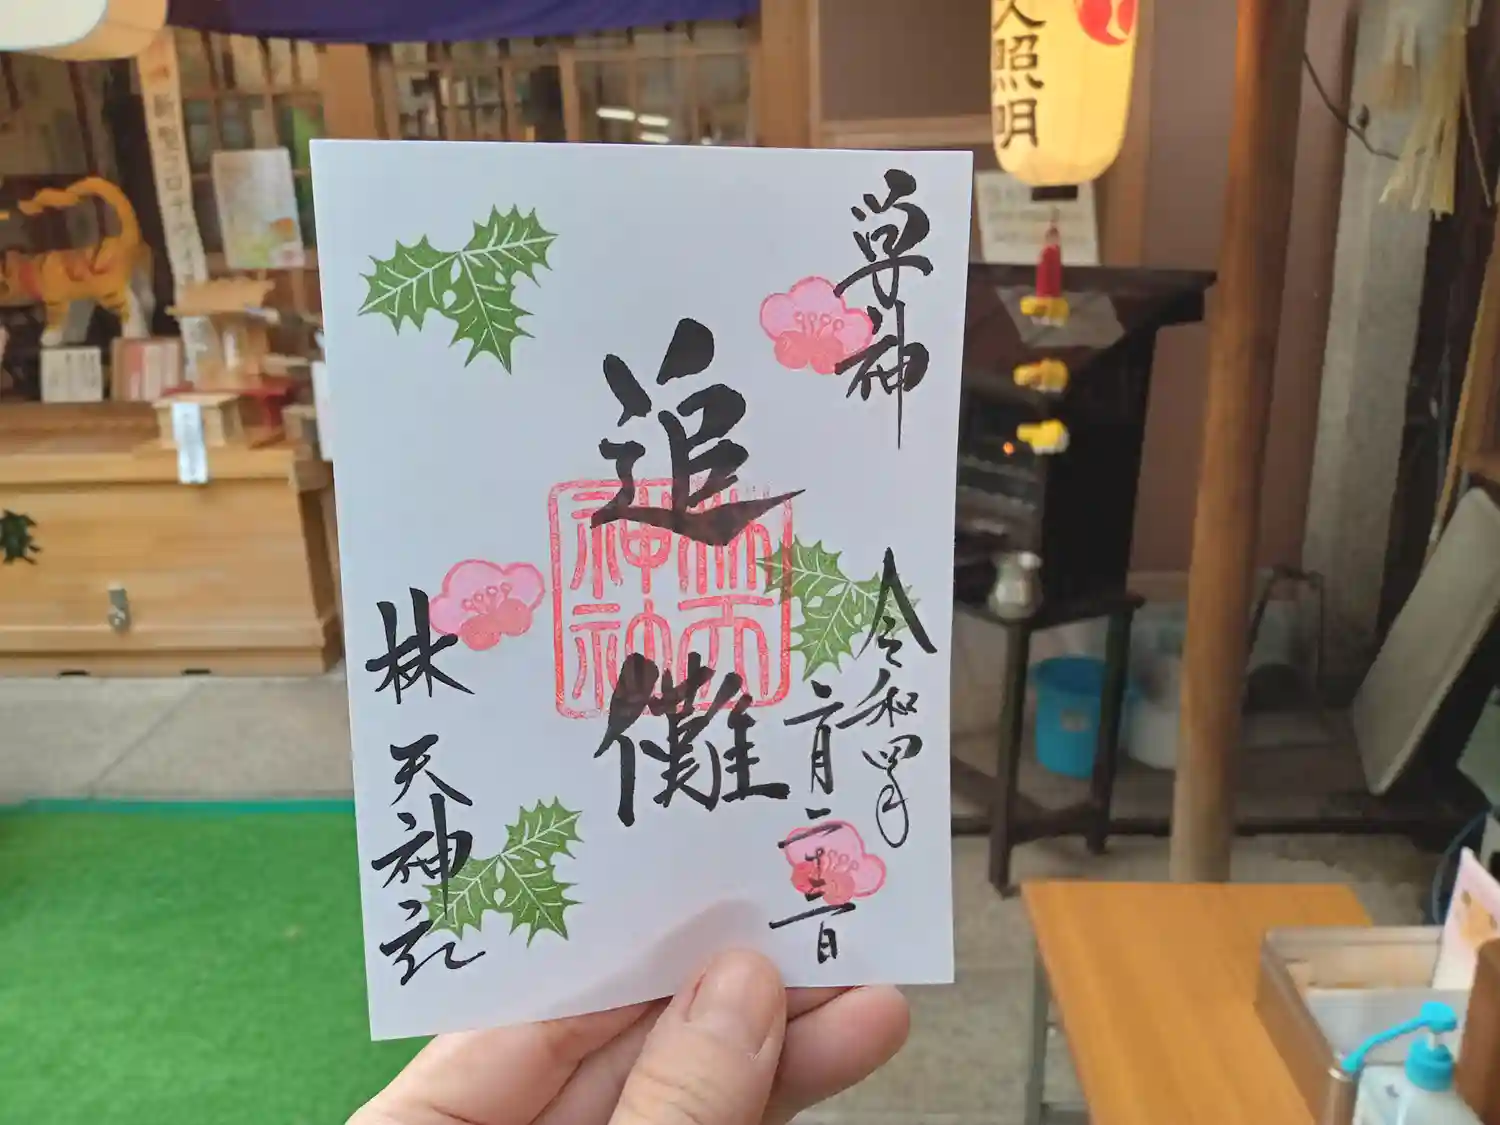 学神
追儺
令和四年
二月二十三日
林天神社
林天
神社
照明